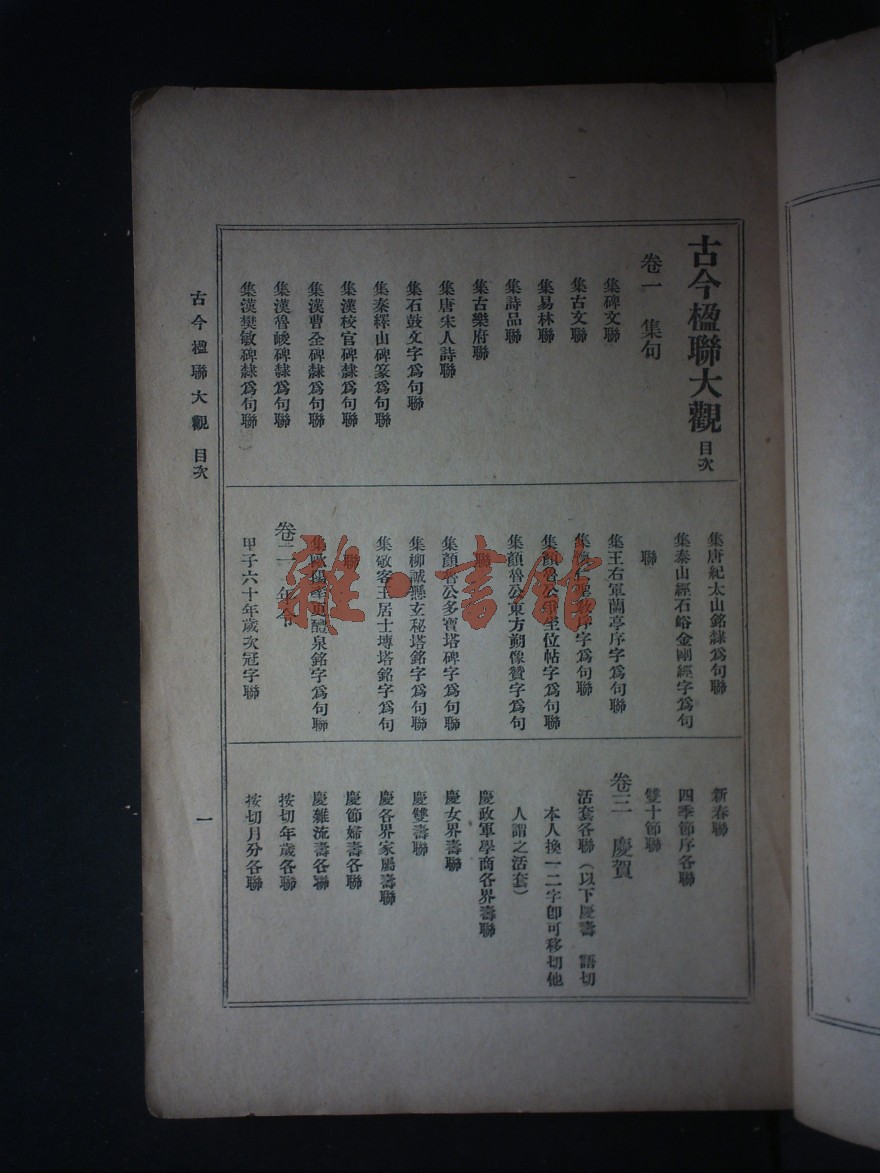 古今楹聯大觀 目次
卷一 集句
集碑文聯
集古文聯
集易林聯
集詩品聯
集古樂府聯
集唐宋人詩聯
集石鼓文字爲句聯
集秦繹山碑篆爲句聯
集漢校官碑隸爲句聯
集漢曹全碑隸爲句聯
集漢魯峻碑隸爲句聯
集漢樊敏碑隸爲句聯
集唐紀太山銘隸爲句聯
集泰山經石峪金剛經字爲句
聯
集王右軍蘭亭序字爲句聯
序字爲句聯
集顏魯公爭坐位帖字爲句聯
集顏魯公東方朔像贊字爲句
聯
集顏魯公多寶塔碑字爲句聯
集柳誠懸玄秘塔銘字爲句聯
集敬客王居士塼塔銘字爲句
聯
集歐陽率更醴泉銘字爲句聯
卷二 年令
甲子六十年歲次冠字聯
新春聯
四季節序各聯
雙十節聯
卷三 慶賀
活套各聯（以下慶壽 語切
本人換一二字卽可移切他
人謂之活套）
慶政軍學商各界壽聯
慶女界壽聯
慶雙壽聯
慶各界家屬壽聯
慶節婦壽各聯
慶雜流壽各聯
按切年歲各聯
按切月分各聯
古今楹聯大觀 目次
一
雜·書館